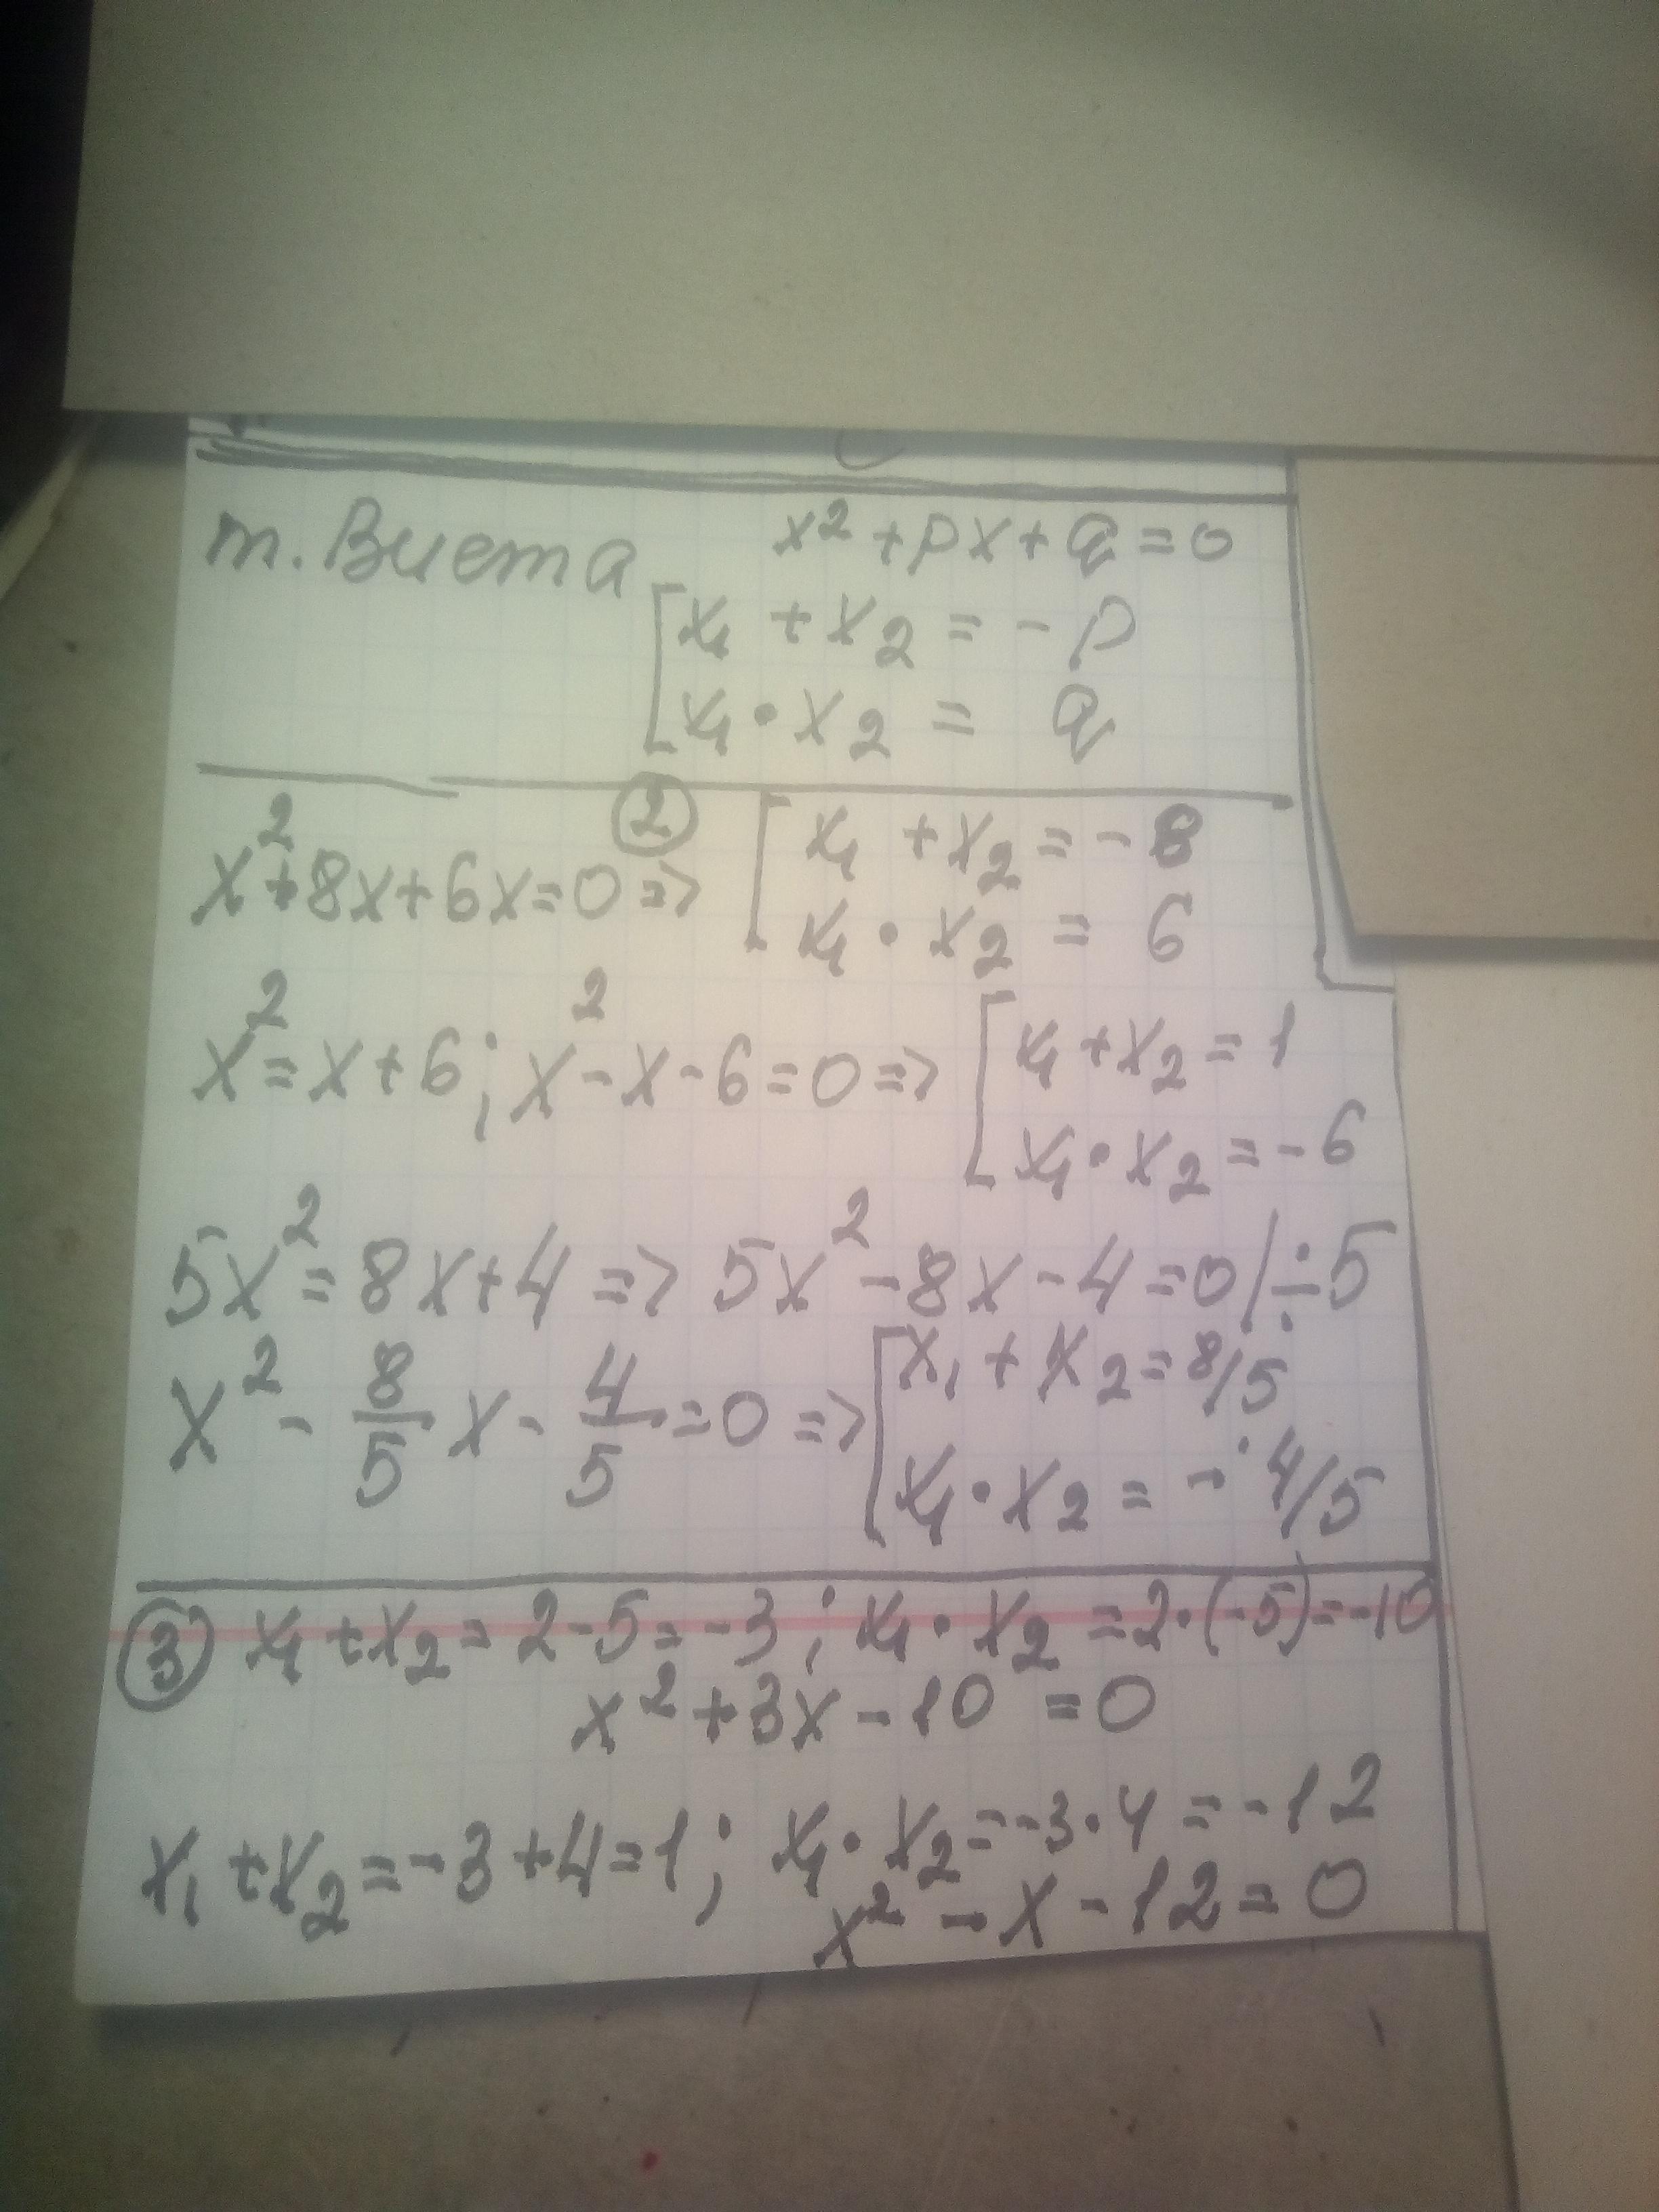 т. Виета x² + px + q = 0
[ x₁ + x₂ = - p
x₁ · x₂ = q
x² + 8x + 6x = 0 => ② [ x₁ + x₂ = - 8
x₁ · x₂ = 6
x² = x + 6; x² - x - 6 = 0 => [ x₁ + x₂ = 1
x₁ · x₂ = - 6
5x² = 8x + 4 => 5x² - 8x - 4 = 0 / ÷ 5
x² - 8/5 x - 4/5 = 0 => [ x₁ + x₂ = 8/5
x₁ · x₂ = - 4/5
③ x₁ + x₂ = 2 - 5 = - 3; x₁ · x₂ = 2 · (-5) = -10
x² + 3x - 10 = 0
x₁ + x₂ = - 3 + 4 = 1; x₁ · x₂ = -3 · 4 = -12
x² - x - 12 = 0